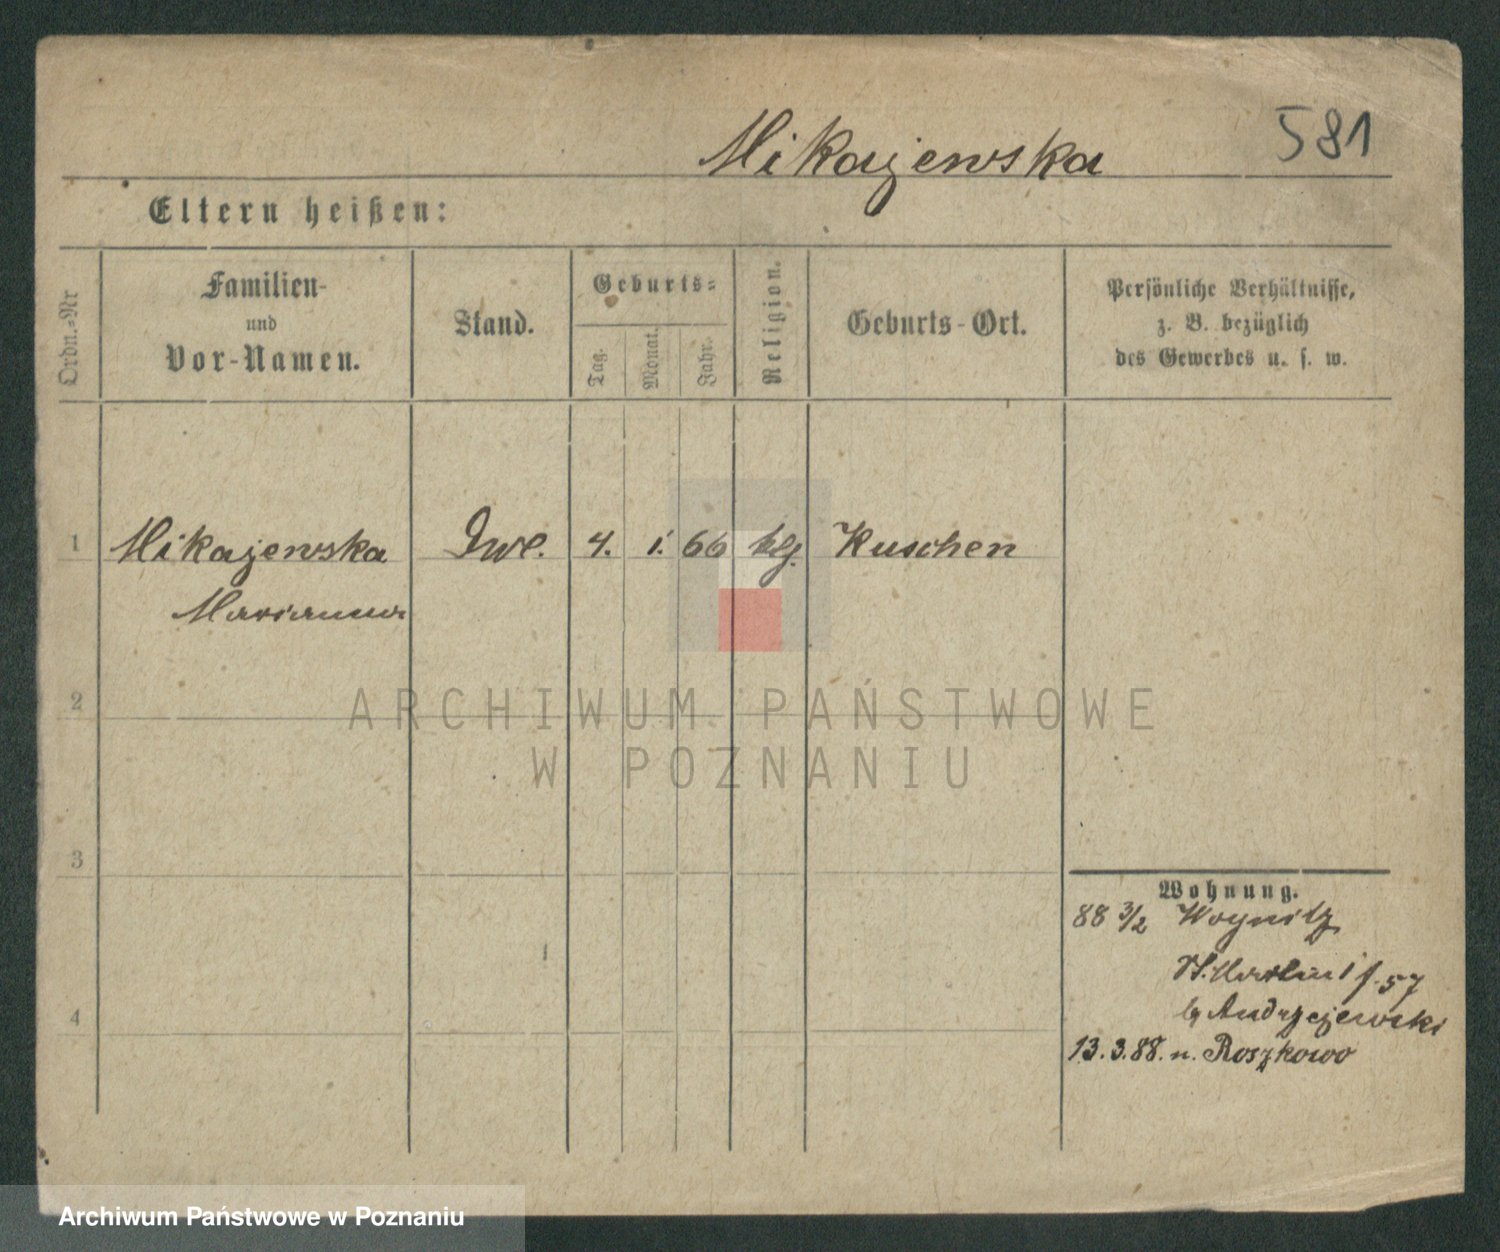 Mikajewska 581
Eltern heißen:
Ordn.-Nr
Familien-
und
Vor-Namen.
Stand.
Geburts=
Tag.
Monat.
Jahr.
Religion.
Geburts-Ort.
Persönliche Verhältnisse,
z. B. bezüglich
des Gewerbes u. s. w.
1 Mikajewska 4. 1. 66 klg. Kuschen
Marianna
2
ARCHIWUM PAŃSTWOWE
W POZNANIU
3
Wohnung.
88 3/2 Woynitz
St. Martin 57
Andrzejewski
4
13. 3. 88. n. Roszkowo
Archiwum Państwowe w Poznaniu